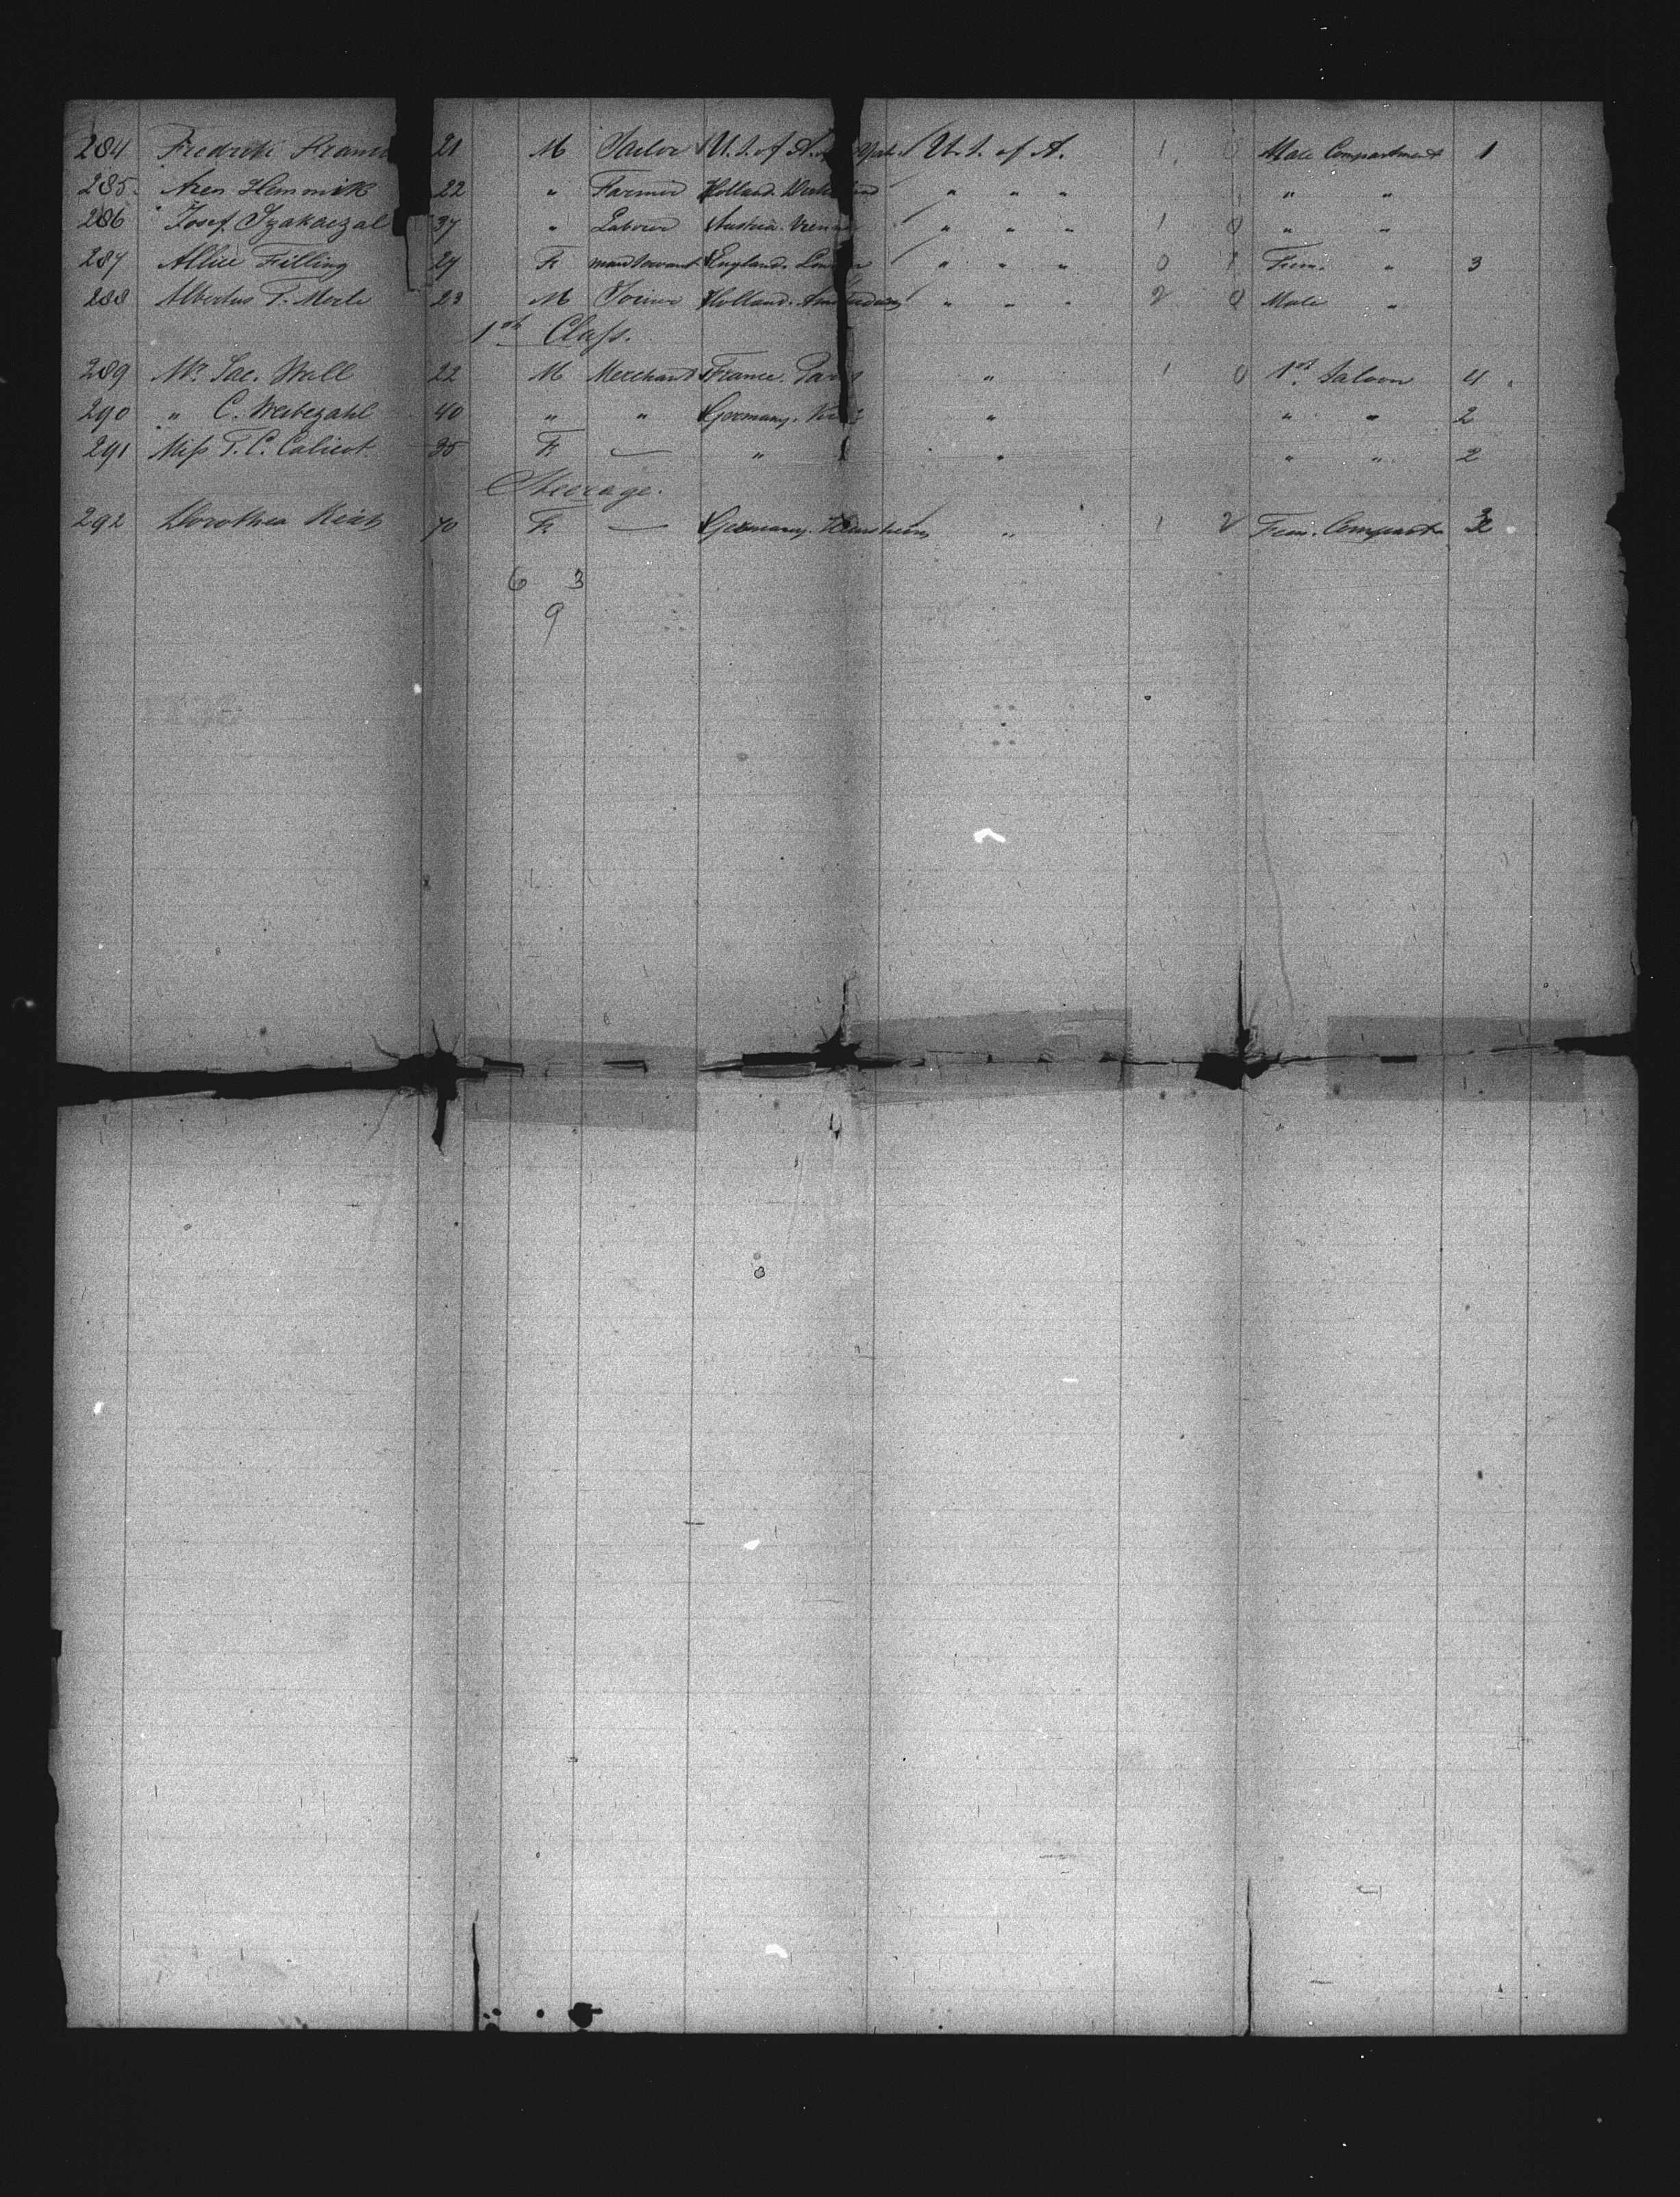 284 Fredrik 21 M Tailor U.S. of A. U.S. of A. 1 0 Male Compartment 1
285 Aren Hemmink 22 " Farmer Holland. " " " " "
286 Josef 37 " Labour Austria. " " " 1 0 " "
287 Allice Filling 27 F. England. London " " " 0 1 Fem. " 3
288 Albertus T. Merle 23 M Holland. Amsterdam " " " 2 0 Male "
1st Class.
289 Mr. Sac. Wall 22 M Merchant France. Paris " 1 0 1st Saloon 4
290 " C. Weibezahl 40 " " Germany. " " " 2
291 Miss T. C. Calicot 35 F. — " " " " 2
Steerage.
292 Dorothea 70 F. — Germany. " 1 2 Fem. Compart. 3
6 3
9